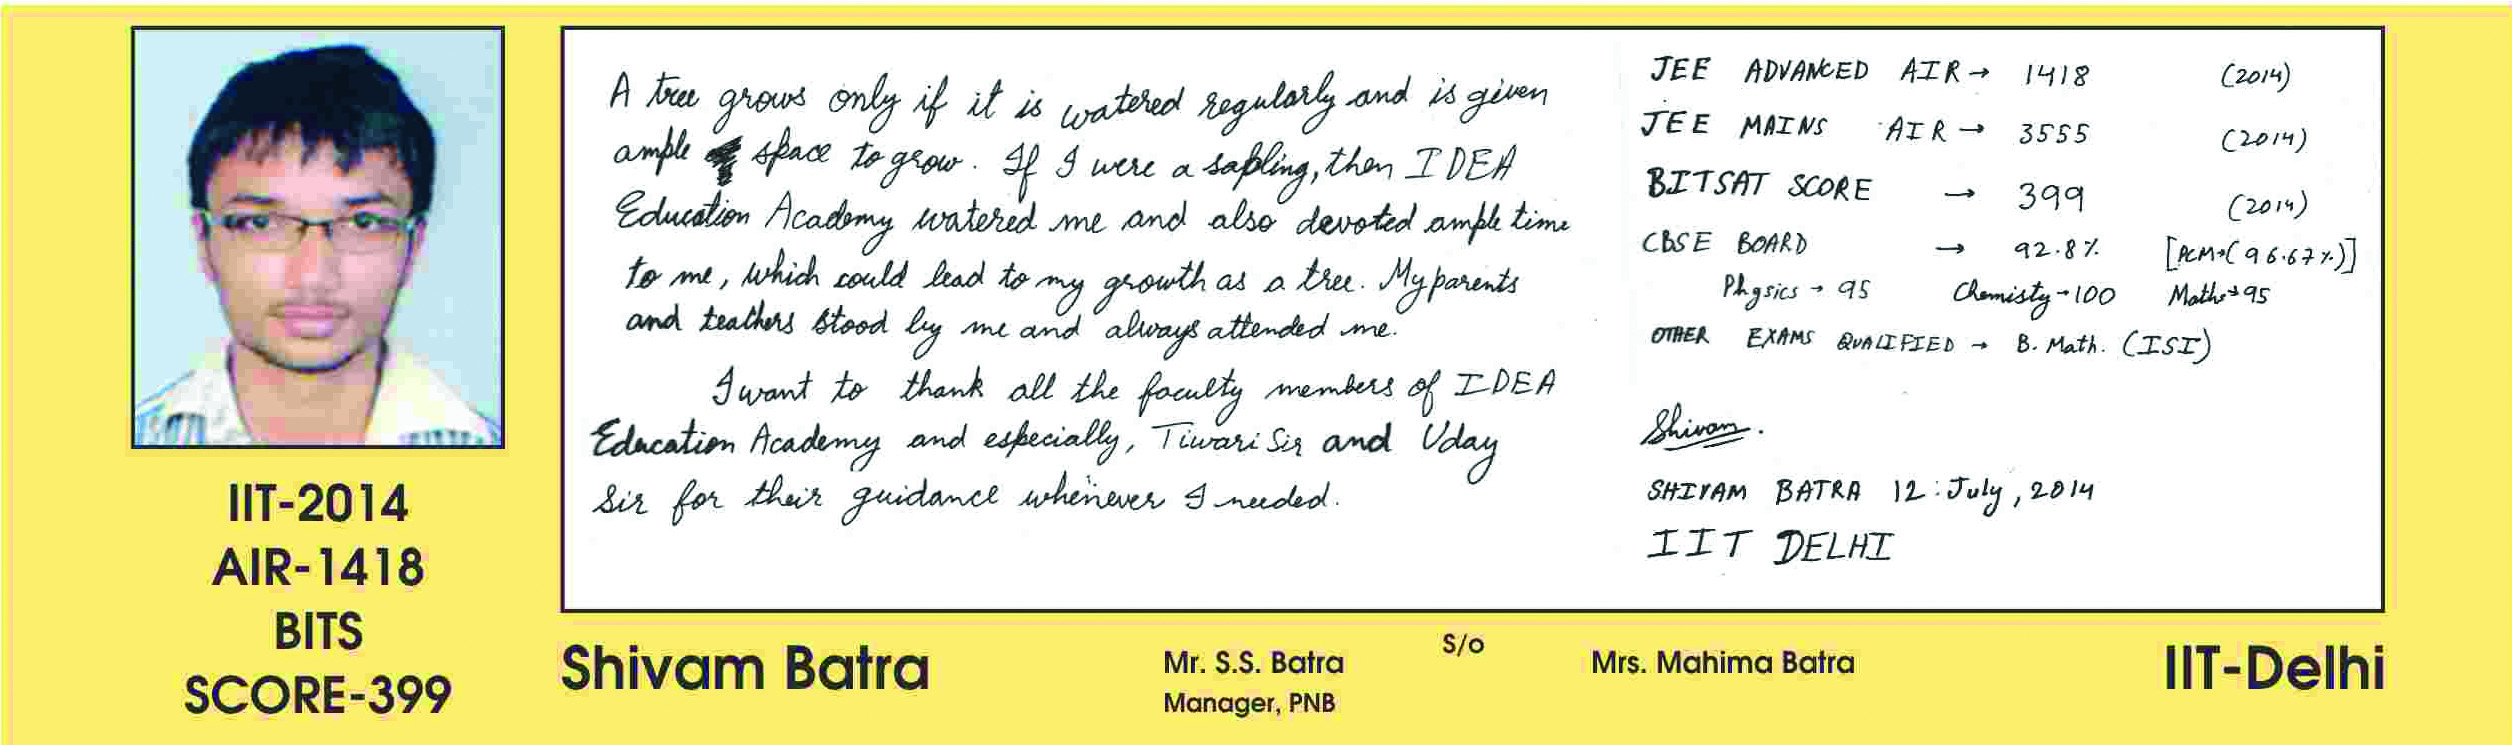 A tree grows only if it is watered regularly and is given
ample space to grow. If I were a sapling, then IDEA
Education Academy watered me and also devoted ample time
to me, which could lead to my growth as a tree. My parents
and teathers stood by me and always attended me.
I want to thank all the faculty members of IDEA
Education Academy and especially, Tiwari Sir and Uday
Sir for their guidance whenever I needed.
JEE ADVANCED AIR → 1418 (2014)
JEE MAINS AIR → 3555 (2014)
BITSAT SCORE → 399 (2014)
CBSE BOARD → 92.8% [PCM→(96.67%)]
Physics → 95 Chemisty → 100 Maths → 95
OTHER EXAMS QUALIFIED → B. Math. (ISI)
Shivam.
SHIVAM BATRA 12 July, 2014
IIT DELHI
IIT-2014
AIR-1418
BITS
SCORE-399
Shivam Batra
S/o
Mr. S.S. Batra Mrs. Mahima Batra
Manager, PNB
IIT-Delhi